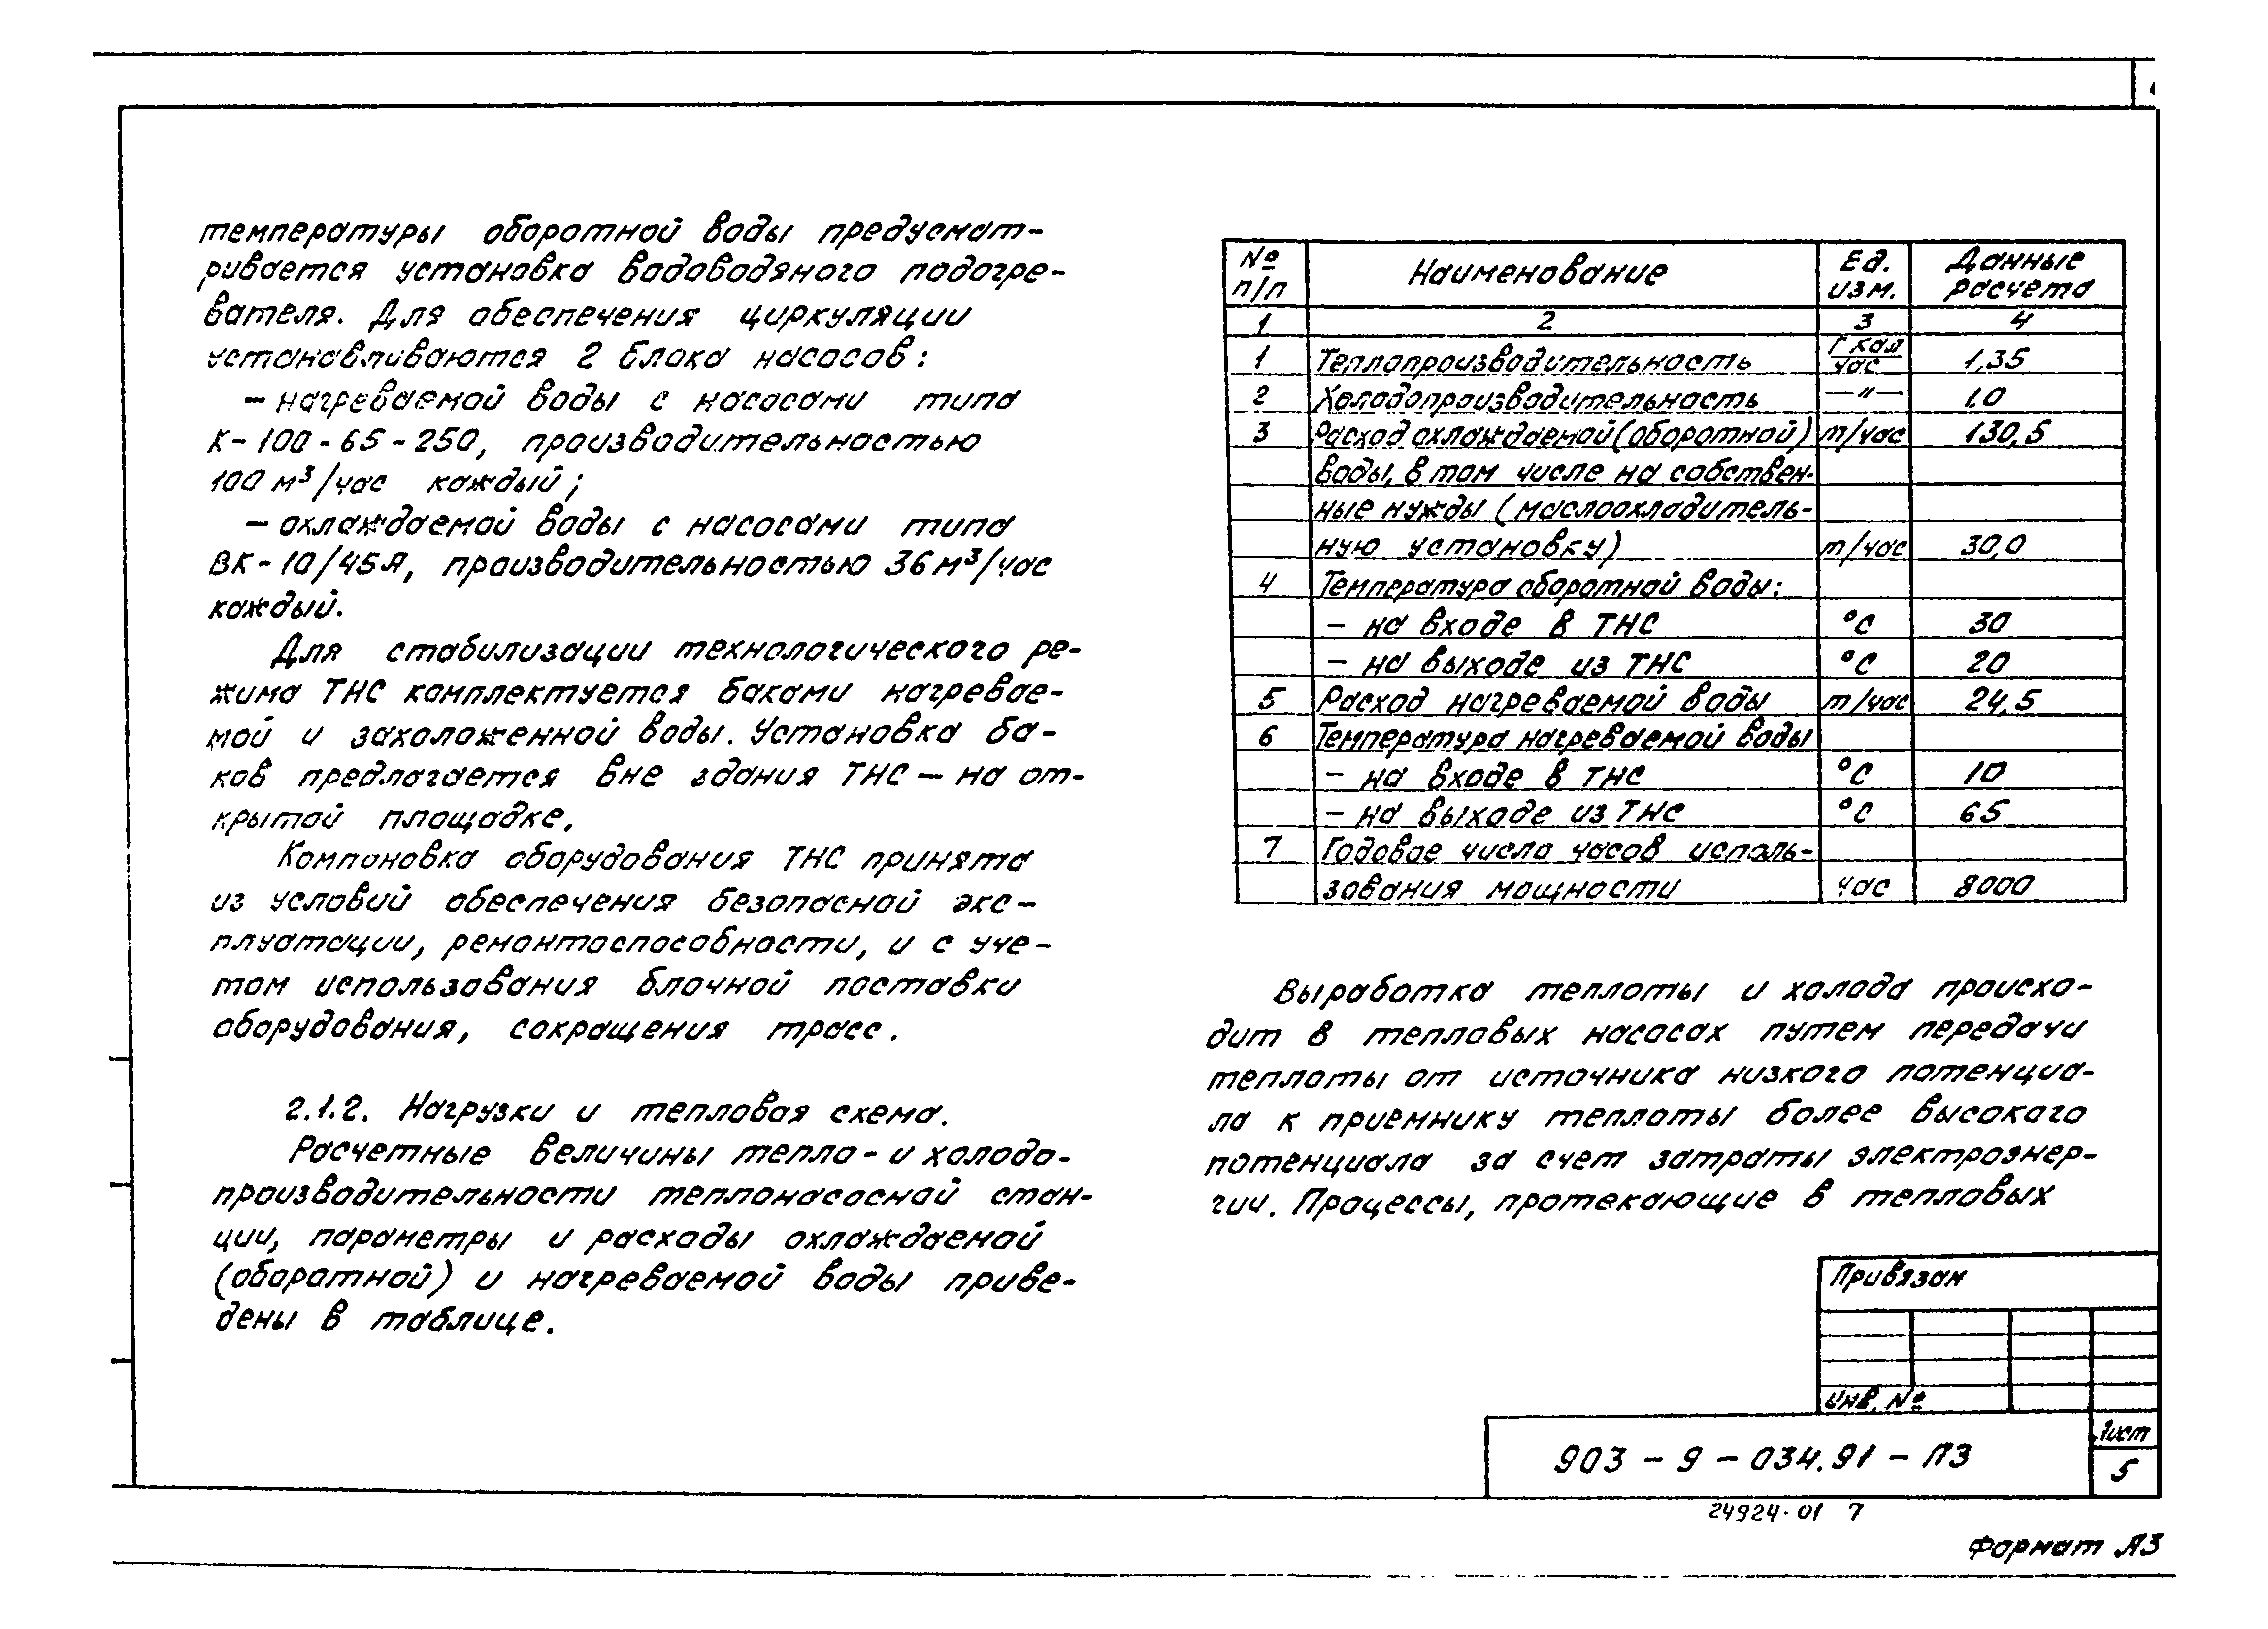 температуры оборотной воды предусмат-
ривается установка водоводяного подогре-
вателя. Для обеспечения циркуляции
устанавливаются 2 блока насосов:
– нагреваемой воды с насосами типа
К-100-65-250, производительностью
100 м³/час каждый;
– охлаждаемой воды с насосами типа
ВК-10/45А, производительностью 36 м³/час
каждый.
Для стабилизации технологического ре-
жима ТНС комплектуется баками нагревае-
мой и захоложенной воды. Установка ба-
ков предлагается вне здания ТНС – на от-
крытой площадке.
Компоновка оборудования ТНС принята
из условий обеспечения безопасной экс-
плуатации, ремонтоспособности, и с уче-
том использования блочной поставки
оборудования, сокращения трасс.
2.1.2. Нагрузки и тепловая схема.
Расчетные величины тепло- и холодо-
производительности теплонасосной стан-
ции, параметры и расходы охлаждаемой
(оборотной) и нагреваемой воды приве-
дены в таблице.
№ п/п Наименование Ед. изм. Данные расчета
1 2 3 4
1 Теплопроизводительность Гкал/час 1,35
2 Холодопроизводительность —"— 1,0
3 Расход охлаждаемой (оборотной) т/час 130,5
воды, в том числе на собствен-
ные нужды (маслоохладитель-
ную установку) т/час 30,0
4 Температура оборотной воды:
– на входе в ТНС °С 30
– на выходе из ТНС °С 20
5 Расход нагреваемой воды т/час 24,5
6 Температура нагреваемой воды
– на входе в ТНС °С 10
– на выходе из ТНС °С 65
7 Годовое число часов исполь-
зования мощности час 8000
Выработка теплоты и холода происхо-
дит в тепловых насосах путем передачи
теплоты от источника низкого потенциа-
ла к приемнику теплоты более высокого
потенциала за счет затраты электроэнер-
гии. Процессы, протекающие в тепловых
Привязан
Инв. №
903-9-034.91-ПЗ
Лист
5
24924-01 7
Формат А3